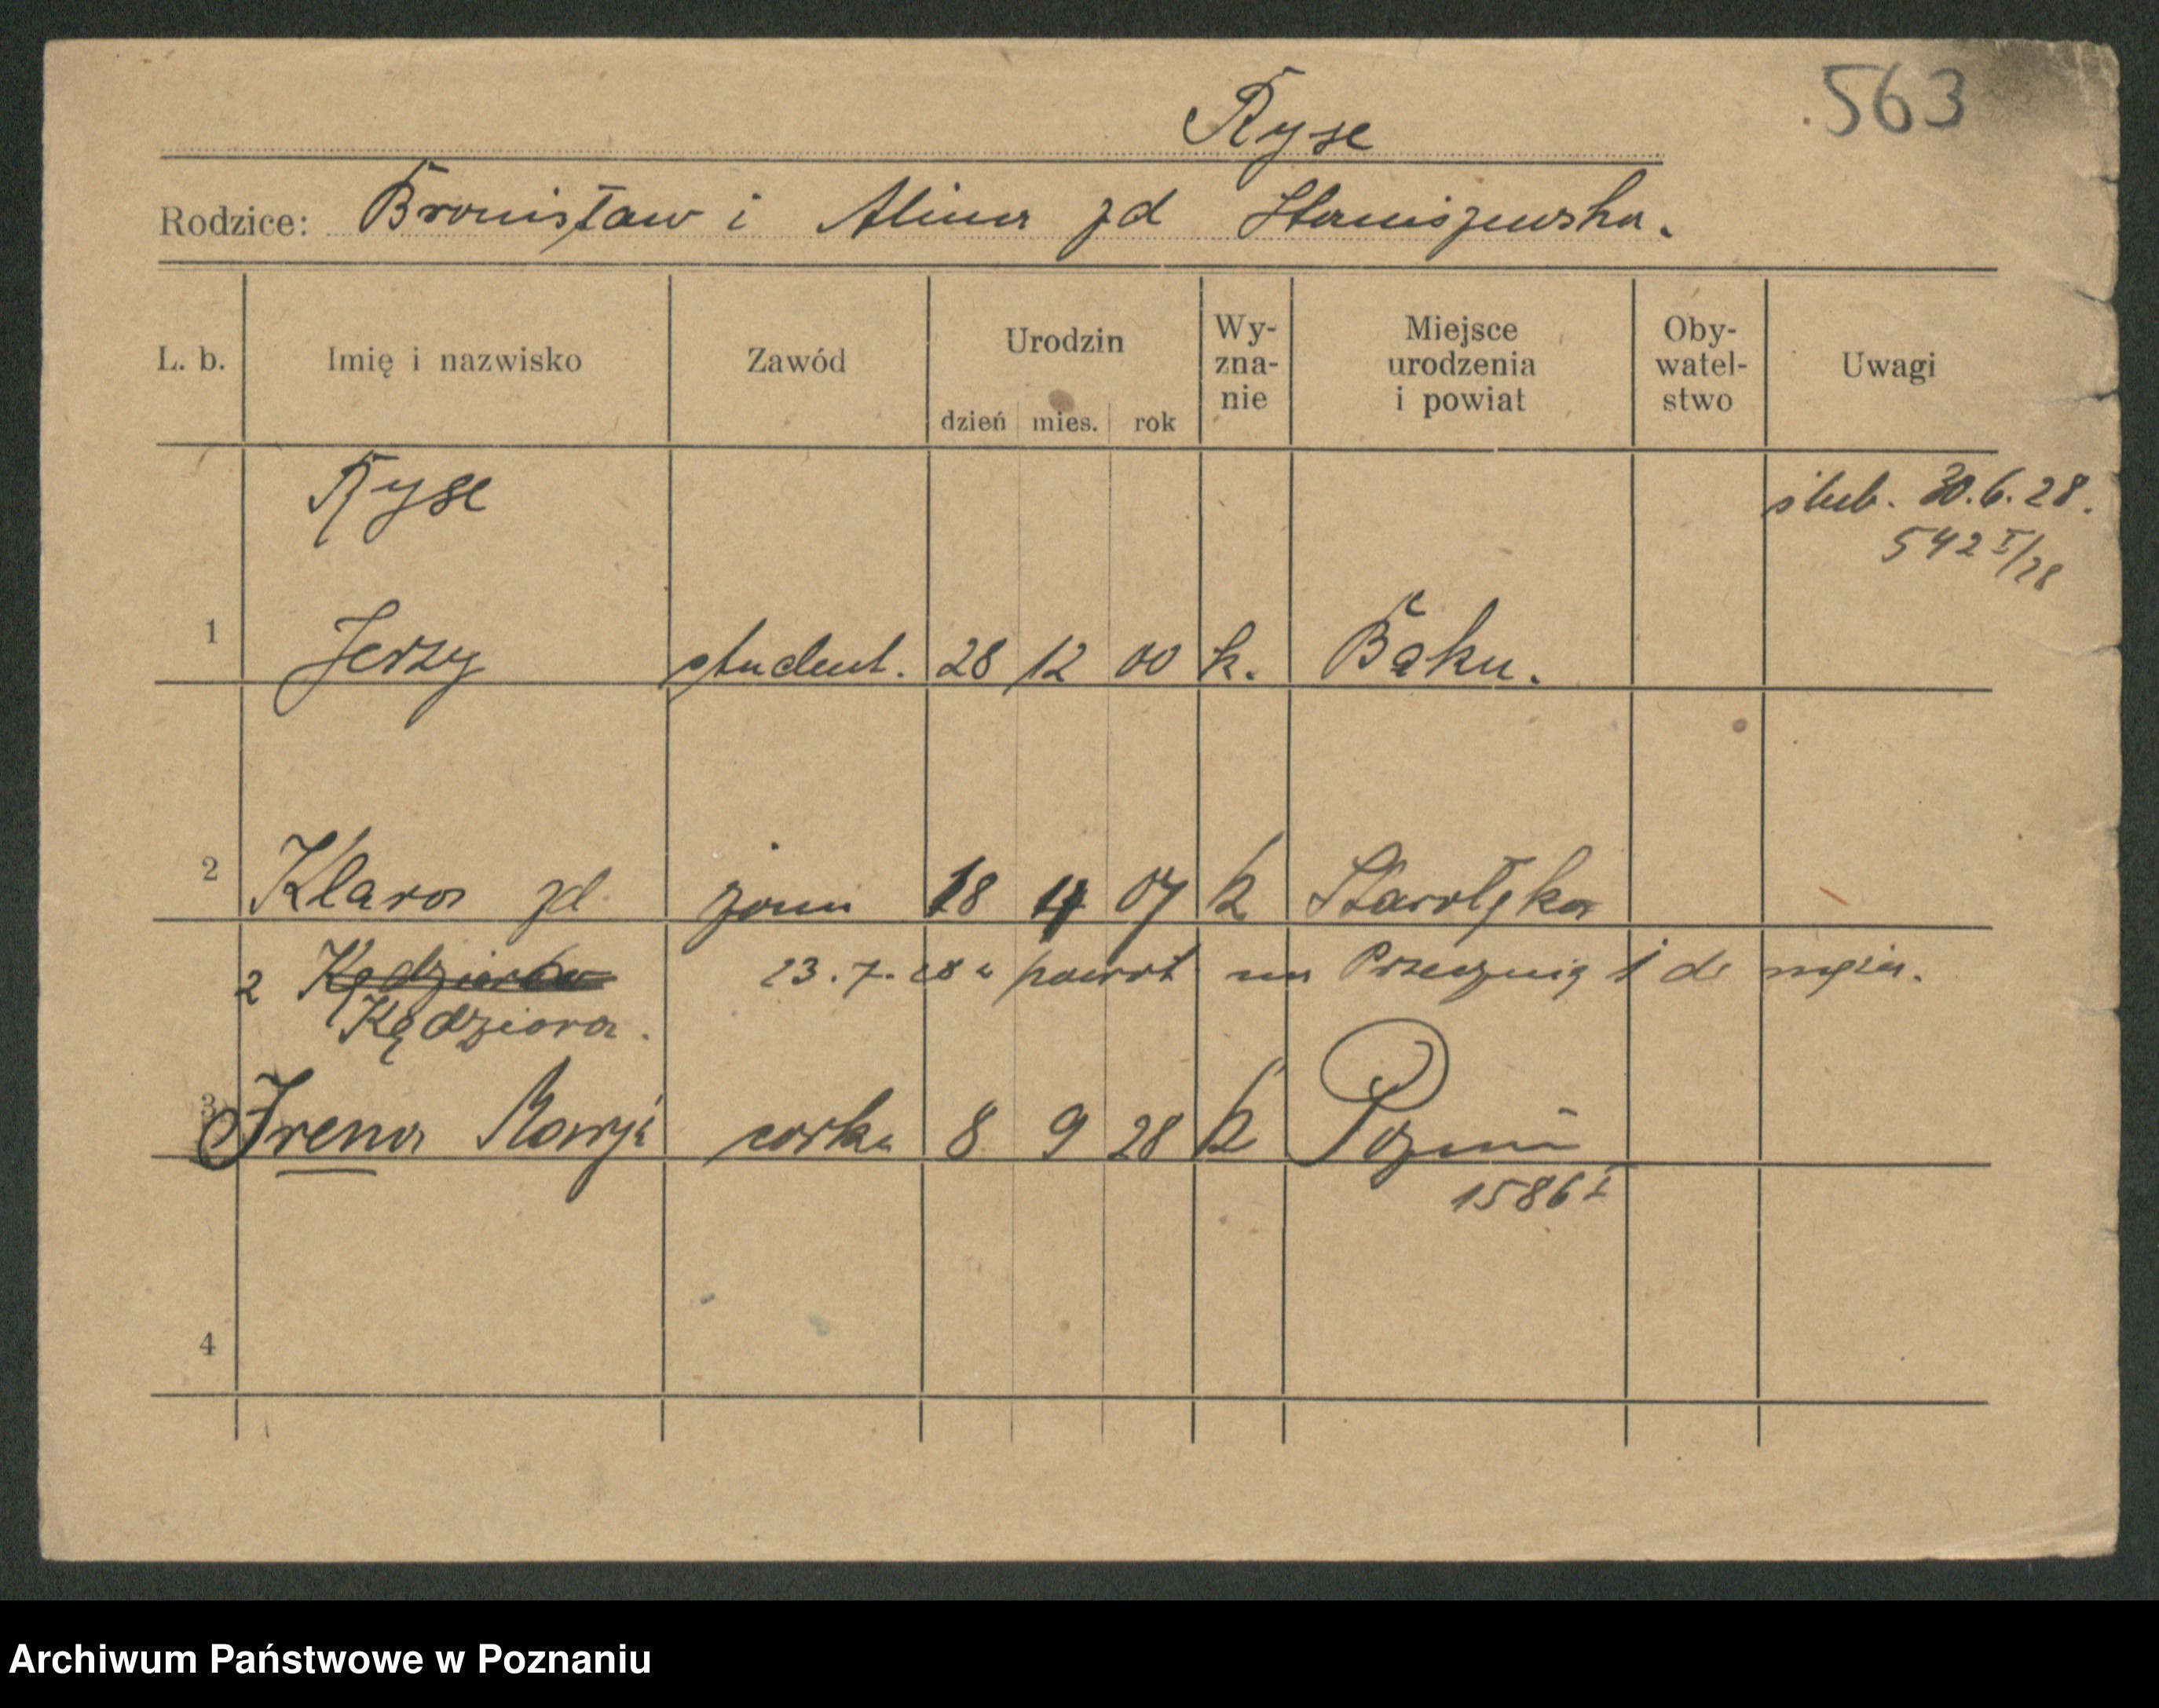 563
Ryse
Rodzice: Bronisław i Alina zd Staniszewska.
L. b. Imię i nazwisko Zawód Urodzin dzień mies. rok Wy-zna-nie Miejsce urodzenia i powiat Oby-watel-stwo Uwagi
Ryse ślub. 30.6.28.
542 I/28
1 Jerzy student. 28 12 00 k. Baku.
2 Klara zd żona 18 07 k Starołęka
2 Kędziora 23.7.28 powrót na i do męża.
Kędziora.
3 Irena Marja córka 8 9 28 k Poznań
1586 I
4
Archiwum Państwowe w Poznaniu